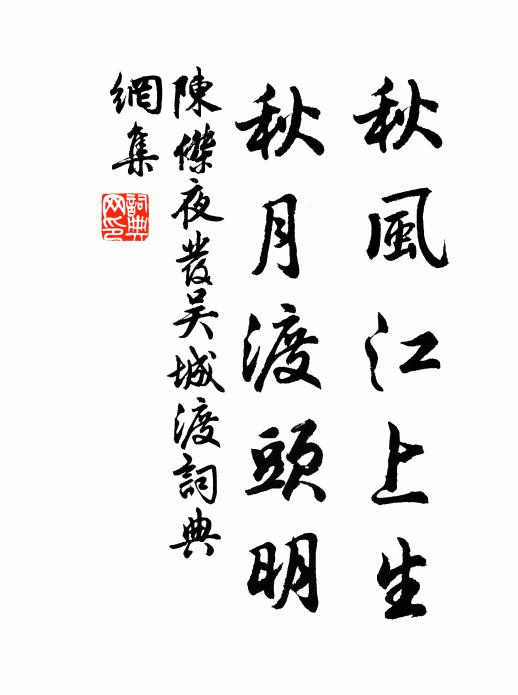 秋風江上生
秋月渡頭明
陳傑夜發吴城渡詞典
網集
詞典
网印